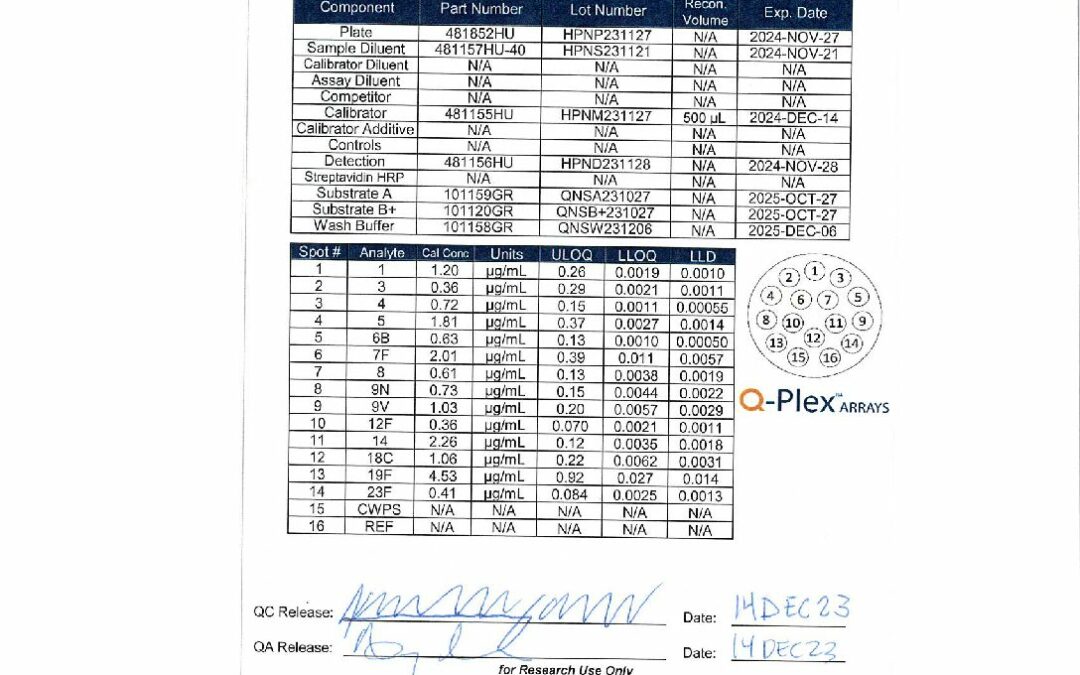 Component Part Number Lot Number Recon. Volume Exp. Date
Plate 481852HU HPNP231127 N/A 2024-NOV-27
Sample Diluent 481157HU-40 HPNS231121 N/A 2024-NOV-21
Calibrator Diluent N/A N/A N/A N/A
Assay Diluent N/A N/A N/A N/A
Competitor N/A N/A N/A N/A
Calibrator 481155HU HPNM231127 500 µL 2024-DEC-14
Calibrator Additive N/A N/A N/A N/A
Controls N/A N/A N/A N/A
Detection 481156HU HPND231128 N/A 2024-NOV-28
Streptavidin HRP N/A N/A N/A N/A
Substrate A 101159GR QNSA231027 N/A 2025-OCT-27
Substrate B+ 101120GR QNSB+231027 N/A 2025-OCT-27
Wash Buffer 101158GR QNSW231206 N/A 2025-DEC-06
Spot # Analyte Cal Conc Units ULOQ LLOQ LLD
1 1 1.20 µg/mL 0.26 0.0019 0.0010
2 3 0.36 µg/mL 0.29 0.0021 0.0011
3 4 0.72 µg/mL 0.15 0.0011 0.00055
4 5 1.81 µg/mL 0.37 0.0027 0.0014
5 6B 0.63 µg/mL 0.13 0.0010 0.00050
6 7F 2.01 µg/mL 0.39 0.011 0.0057
7 8 0.61 µg/mL 0.13 0.0038 0.0019
8 9N 0.73 µg/mL 0.15 0.0044 0.0022
9 9V 1.03 µg/mL 0.20 0.0057 0.0029
10 12F 0.36 µg/mL 0.070 0.0021 0.0011
11 14 2.26 µg/mL 0.12 0.0035 0.0018
12 18C 1.06 µg/mL 0.22 0.0062 0.0031
13 19F 4.53 µg/mL 0.92 0.027 0.014
14 23F 0.41 µg/mL 0.084 0.0025 0.0013
15 CWPS N/A N/A N/A N/A N/A
16 REF N/A N/A N/A N/A N/A
1
2 3
4 6 7 5
8 10 11 9
13 12 14
15 16
Q-Plex™ ARRAYS
QC Release: Date: 14DEC23
QA Release: Date: 14DEC23
for Research Use Only